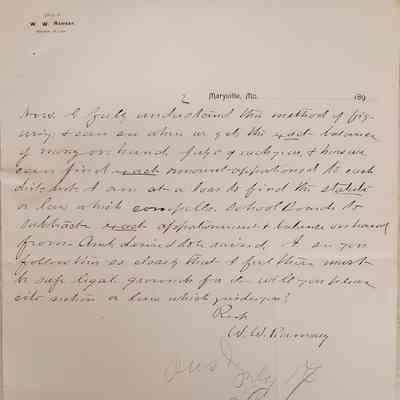 Office of
W. W. Ramsay,
2 Maryville, Mo. 189
Now I fully understand this method of fig-
uring, & can see where we get the exact balance
of money on hand of each year, & how we
can find exact amount apportioned to each
district I am at a loss to find the statute
or law which compells School Boards to
subtract exact apportionment & balance on hand
from Amt derived to be raised. I see you
follow this so closely that I feel there must
be safe legal grounds for it will you please
cite section or law which guides you?
Resp
W. W. Ramsay
Ansd
July 17